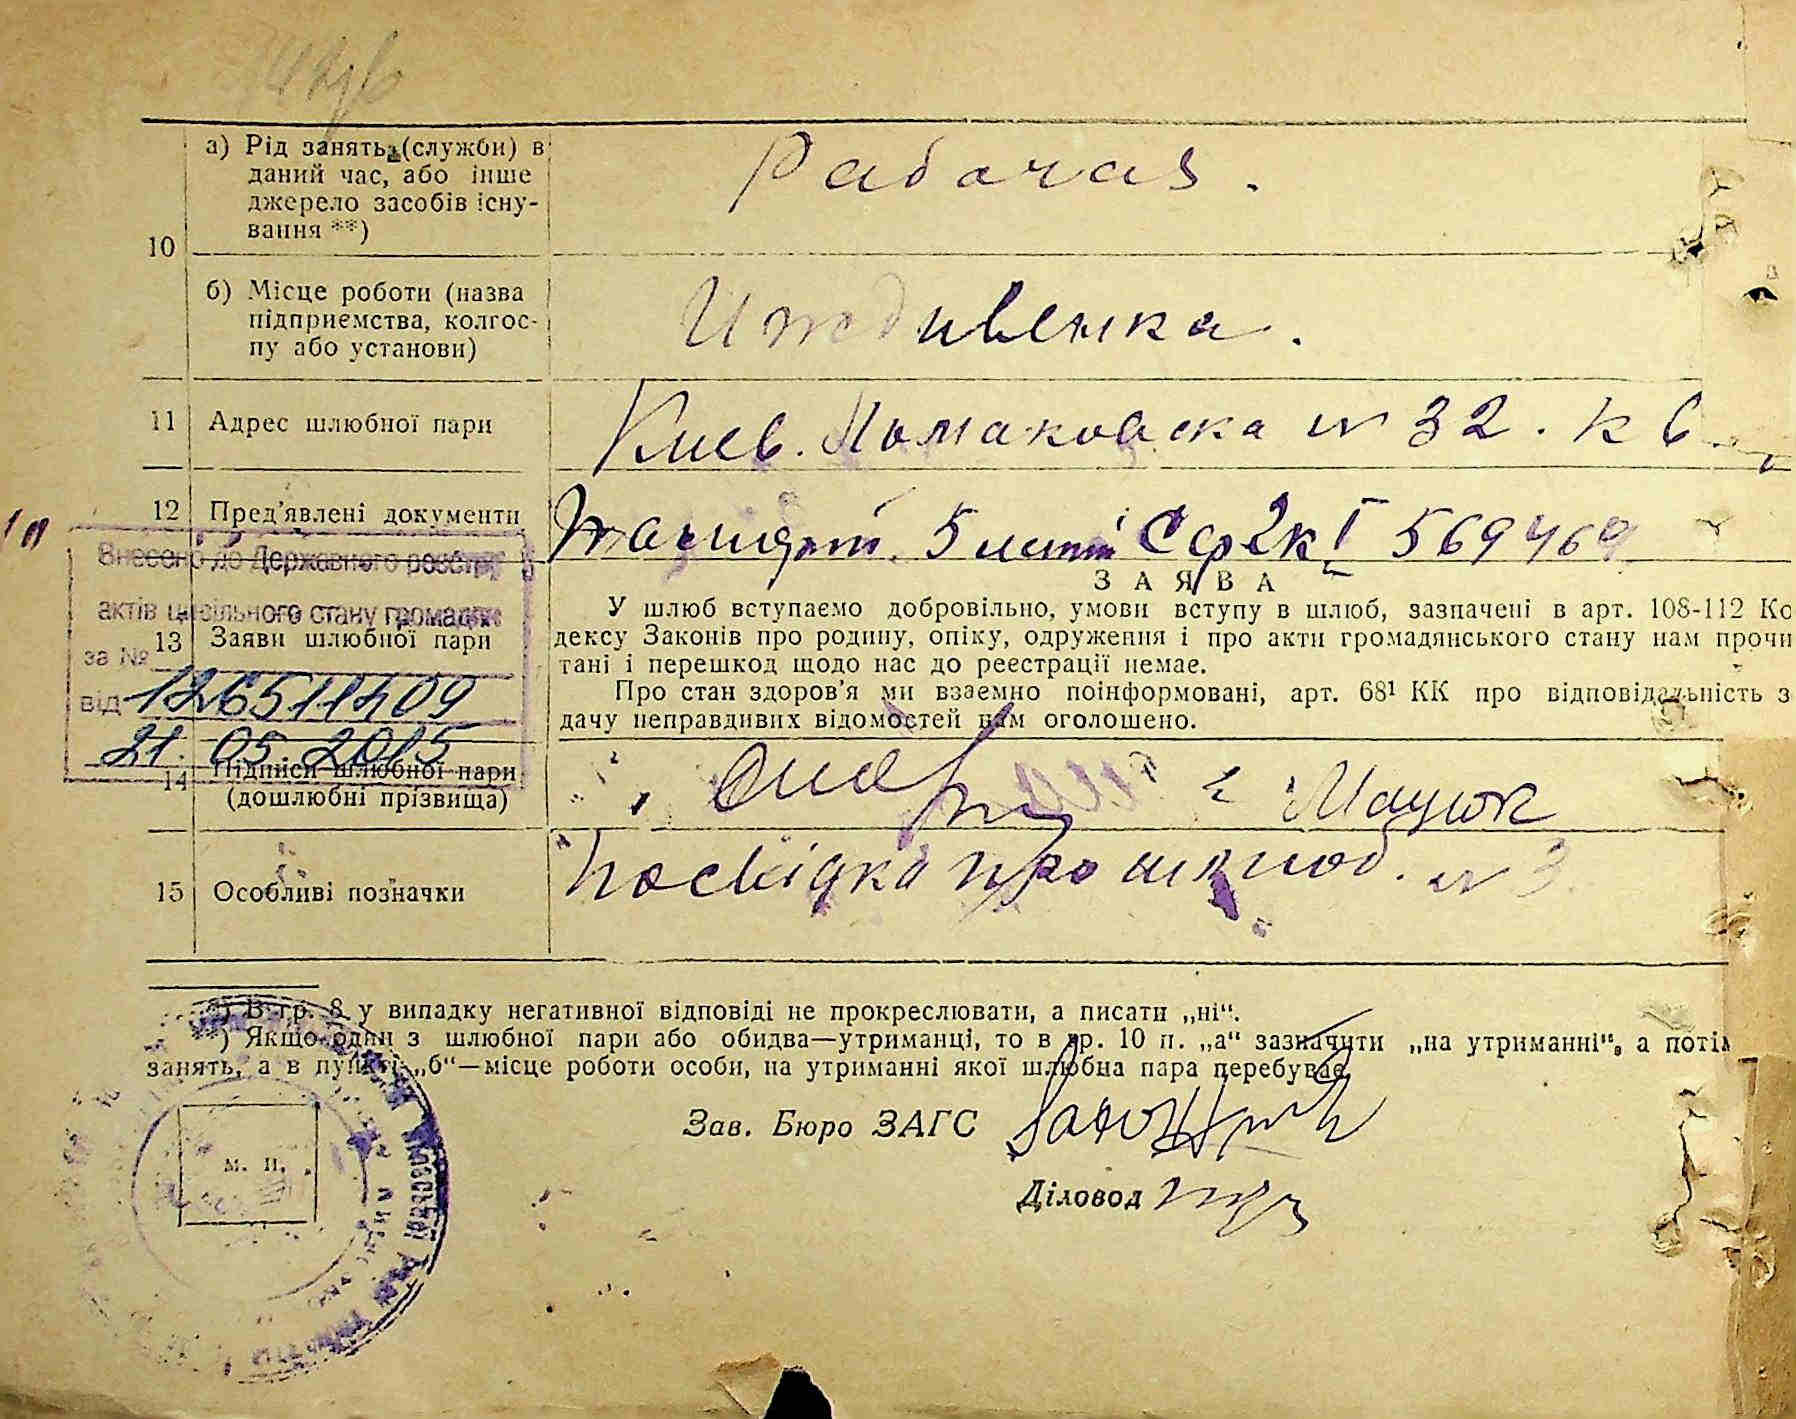 а) Рід занять (служби) в
даний час, або інше
джерело засобів існу-
вання **)
Рабочая.
10
б) Місце роботи (назва
підприємства, колгос-
пу або установи)
Иждивенка.
11 Адрес шлюбної пари
Киев. № 32. к 6
12 Пред'явлені документи
569469
Внесено до Державного реєстру
актів цивільного стану громадян
за №
126511409
від
21. 05. 2015
13 Заяви шлюбної пари
ЗАЯВА
У шлюб вступаємо добровільно, умови вступу в шлюб, зазначені в арт. 108-112 Ко
дексу Законів про родину, опіку, одруження і про акти громадянського стану нам прочи
тані і перешкод щодо нас до реєстрації немає.
Про стан здоров'я ми взаємно поінформовані, арт. 68¹ КК про відповідальність з
дачу неправдивих відомостей нам оголошено.
14 Підписи шлюбної пари
(дошлюбні прізвища)
Мацюк
15 Особливі позначки
Посвідка про шлюб. № 3.
*) В гр. 8 у випадку негативної відповіді не прокреслювати, а писати „ні“.
**) Якщо один з шлюбної пари або обидва—утриманці, то в гр. 10 п. „а“ зазначити „на утриманні“, а потім
занять, а в пункті „б“—місце роботи особи, на утриманні якої шлюбна пара перебуває.
Зав. Бюро ЗАГС
м. п.
Діловод